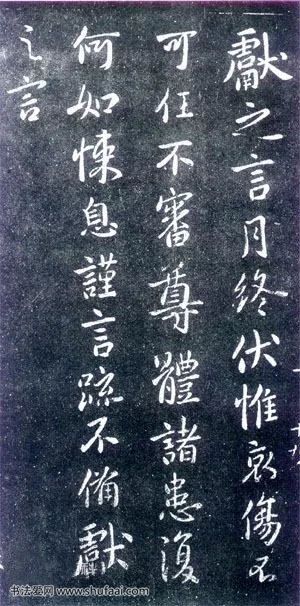 獻之言月終伏惟哀傷不
可任不審尊體諸患復
何如悚息謹言疏不備獻
之言
书法爱网 www.shufaai.com